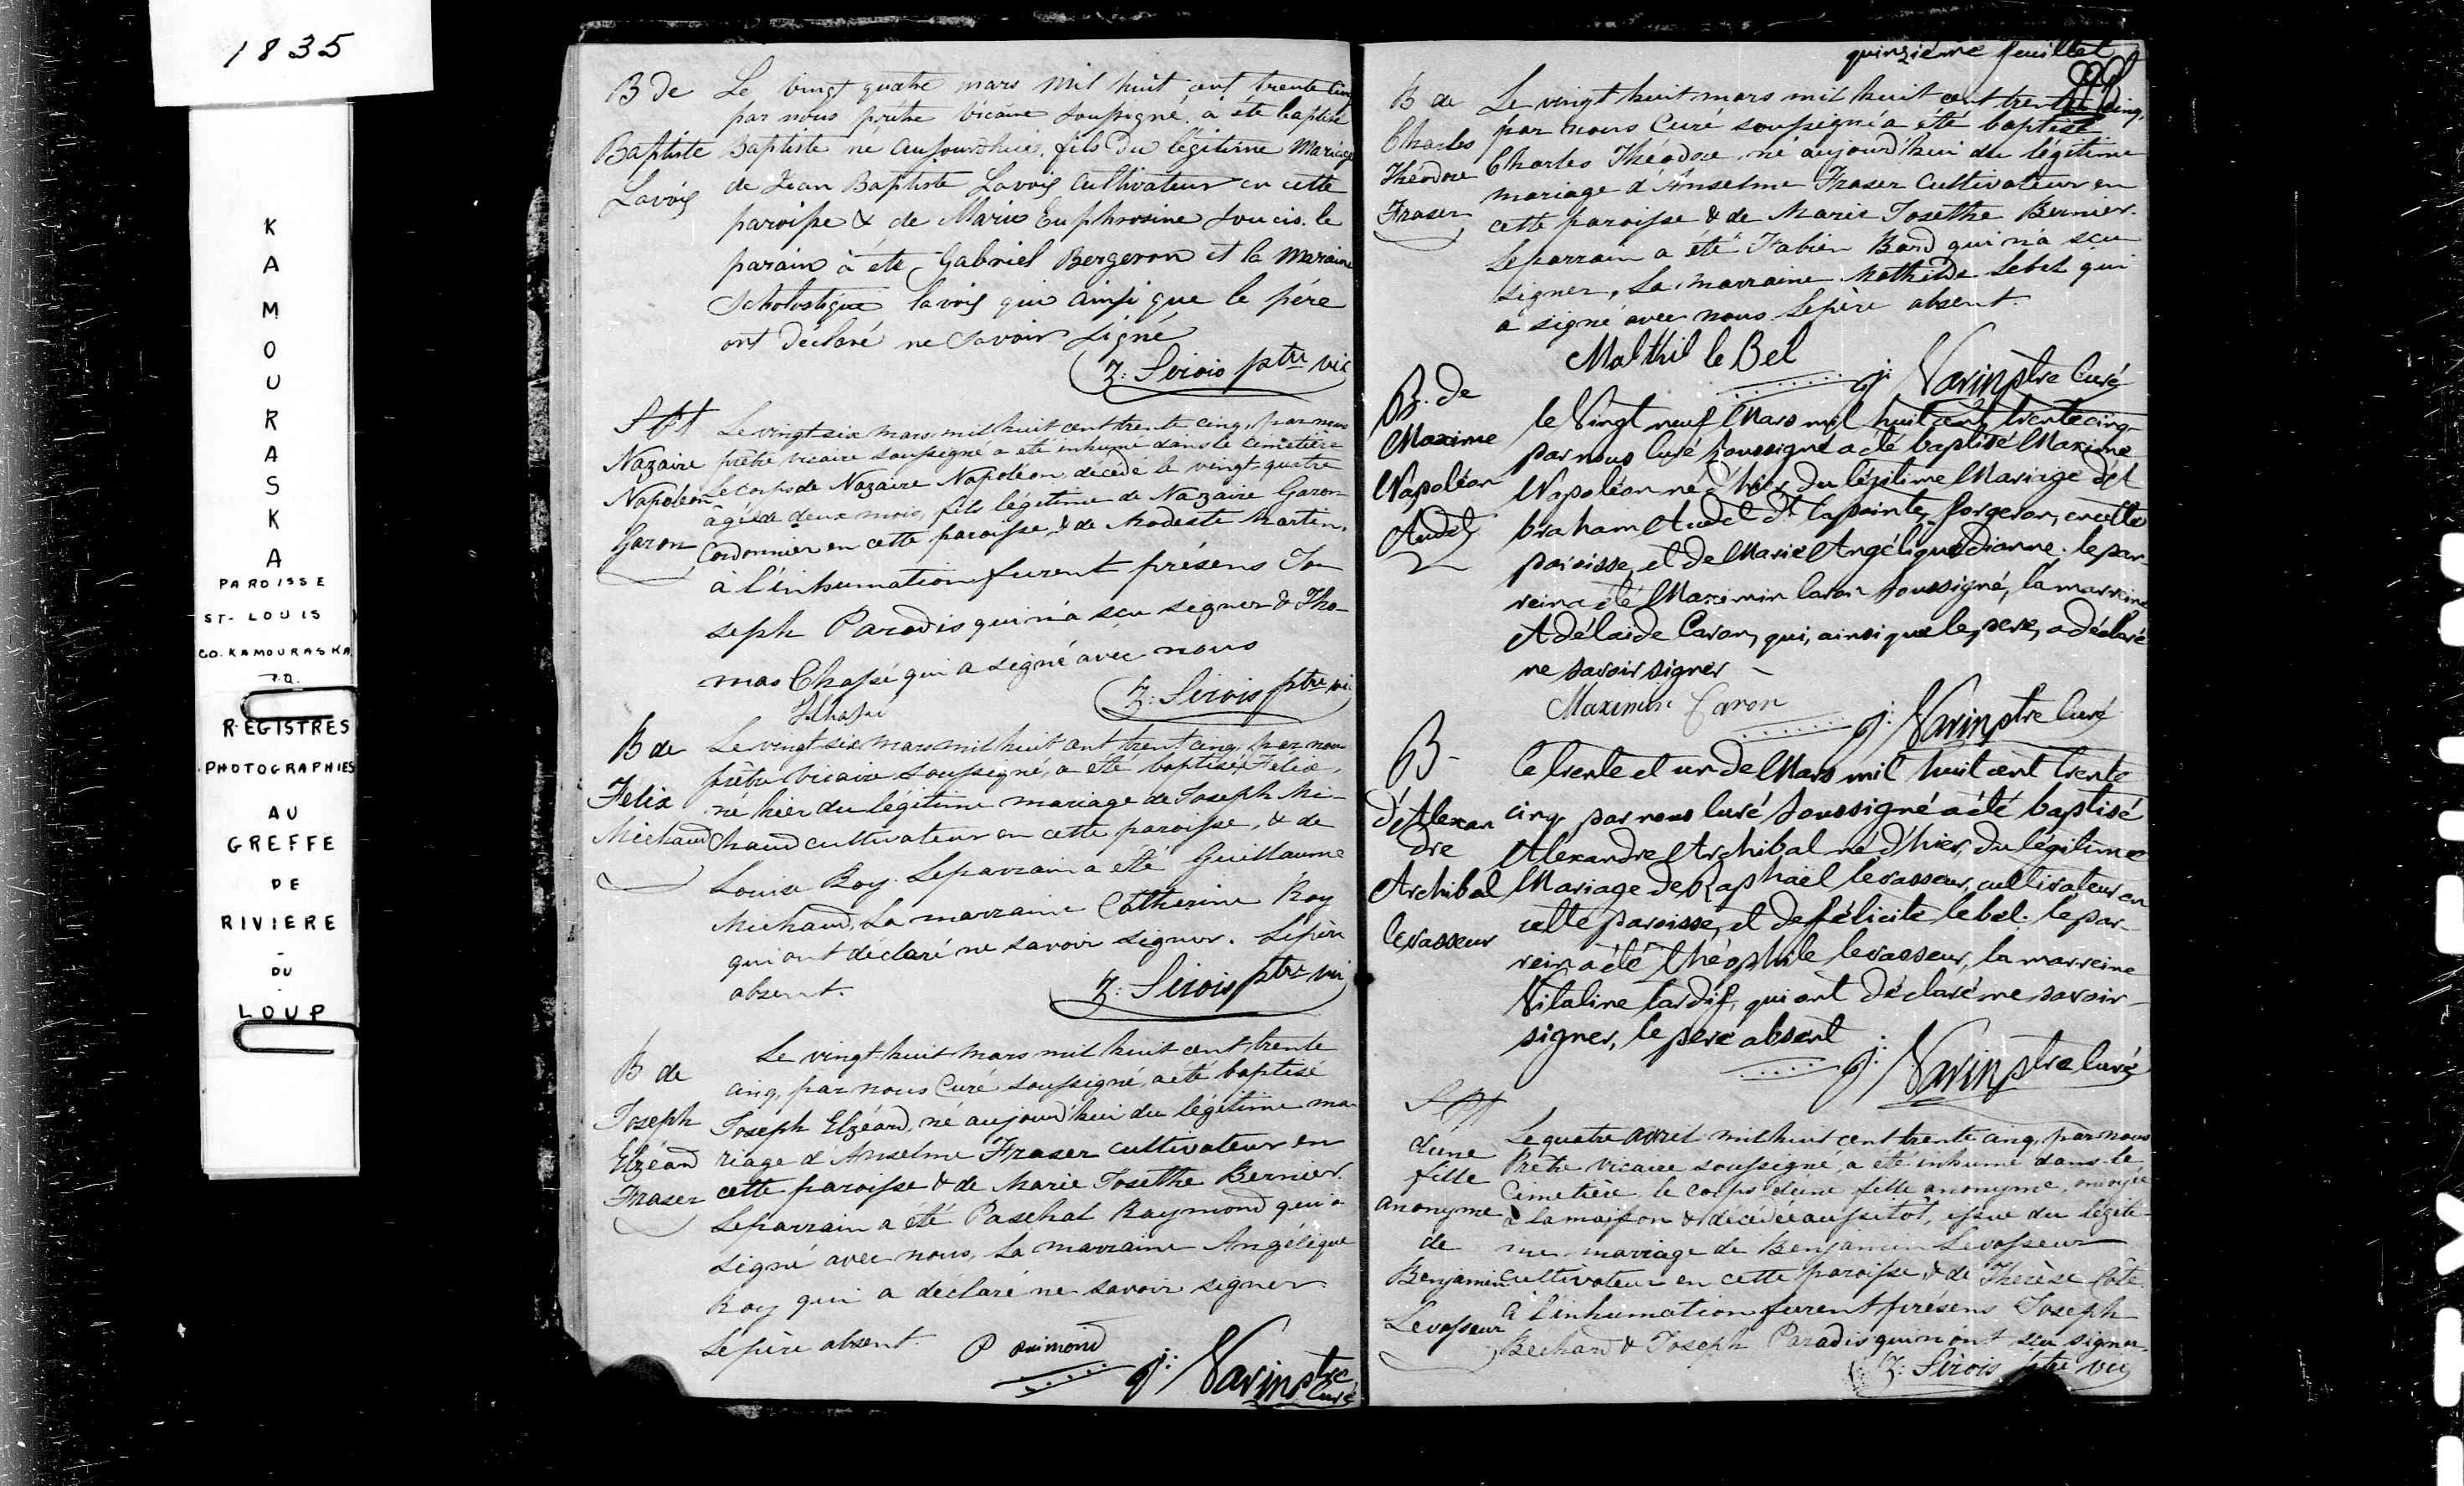 1835
K
A
M
O
U
R
A
S
K
A
PAROISSE
ST-LOUIS
CO. KAMOURASKA
P.Q.
REGISTRES
PHOTOGRAPHIES
AU
GREFFE
DE
RIVIERE
-
DU
-
LOUP
B de
Baptiste
Lavoiſ
Le vingt quatre mars mil huit cent trente cinq
par nous prêtre vicaire soussigné, a été baptisé
Baptiste né aujourdhui, fils du légitime mariage
de Jean Baptiste Lavoiſ cultivateur en cette
paroisse & de Marie Euphrosine Soucis. le
parain à été Gabriel Bergeron et la maraine
Scholastique lavoiſ qui ainsi que le père
ont déclaré ne savoir signé
Z: Sirois ptre vic
Spt
Nazaire
Napoléon
Garon
Le vingt six mars mil huit cent trente cinq, par nous
prêtre vicaire soussigné a été inhumé dans le cimetière
le corps de Nazaire Napoléon décédé le vingt-quatre
âgé de deux mois, fils légitime de Nazaire Garon
Cordonnier en cette paroisse, & de Modeste Martin,
à l'inhumation furent présens Jo-
seph Paradis qui n'a sçu signer & Tho-
mas Chassé qui a signé avec nous
T. Chassé
Z: Sirois ptre vic
B de
Felix
Michaud
Le vingt-six mars mil huit cent trent cinq, par nous
prêtre vicaire soussigné, a été baptisé Félix,
né hier du légitime mariage de Joseph Mi-
chaud cultivateur en cette paroisse, & de
Louise Roy. Le parrain a été Guillaume
Michaud, La marraine Catherine Roy
qui ont déclaré ne savoir signer. Le père
absent.
Z: Sirois ptre vic
B de
Joseph
Elzéard
Fraser
Le vingt-huit mars mil huit cent trente
cinq, par nous Curé soussigné, a été baptisé
Joseph Elzéard, né aujourd'hui du légitime ma-
riage d'Anselme Fraser cultivateur en
cette paroisse & de Marie Josethe Bernier.
Le parrain a été Paschal Raymond qui a
signé avec nous, La marraine Angélique
Roy qui a déclaré ne savoir signer.
Le père absent.
P Raimond
J: Varin ptre
Curé
quinzième feuillet
B de
Charles
Théodore
Fraser
Le vingt huit mars mil huit cent trente cinq,
par nous Curé soussigné a été baptisé
Charles Théodore, né aujourd'hui du légitime
mariage d'Anselme Fraser Cultivateur en
cette paroisse & de Marie Josethe Bernier.
Le parrain a été Fabien Bard qui n'a sçu
signer, La marraine Mathilde Lebel qui
a signé avec nous Le père absent
Malthil le Bel
J: Varin ptre Curé
B. de
Maxime
Napoléon
Audet
le Vingt neuf Mars mil huit cent trente cinq
par nous Curé soussigné a été baptisé Maxime
Napoléon né d'hier du légitime Mariage d'A
braham Audet dt lapointe, forgeron, en cette
paroisse, et de Marie Angélique Dionne. le par-
rein a été Maximin Caron soussigné, la marreine
Adélaide Caron, qui, ainsi que le pere, a déclaré
ne savoir signer
Maximin Caron
J: Varin ptre Curé
B-
d'Alexan
dre
Archibal
levasseur
Le trente et un de Mars mil huit cent trente
cinq par nous Curé soussigné a été baptisé
Alexandre Archibal né d'hier, du légitime
Mariage de Raphael levasseur, cultivateur en
cette paroisse, et de félicité lebel. le par-
rein a été Théophile levasseur, la marreine
Vitaline tardif, qui ont déclaré ne savoir
signer, le pere absent
J: Varin ptre Curé
Spt
d'une
fille
anonyme
de
Benjamin
Levasseur
Le quatre avril mil huit cent trente cinq, par nous
Prêtre vicaire soussigné, a été inhumé dans le
Cimetière, le corps d'une fille anonyme, ondoyée
à la maison & décédée aussitôt, issue du légiti-
me mariage de Benjamin Levasseur
cultivateur en cette paroisse & de Thérèse Côté.
à l'inhumation furent présens Joseph
Bechard & Joseph Paradis qui n'ont sçu signer
Z: Sirois ptre vic